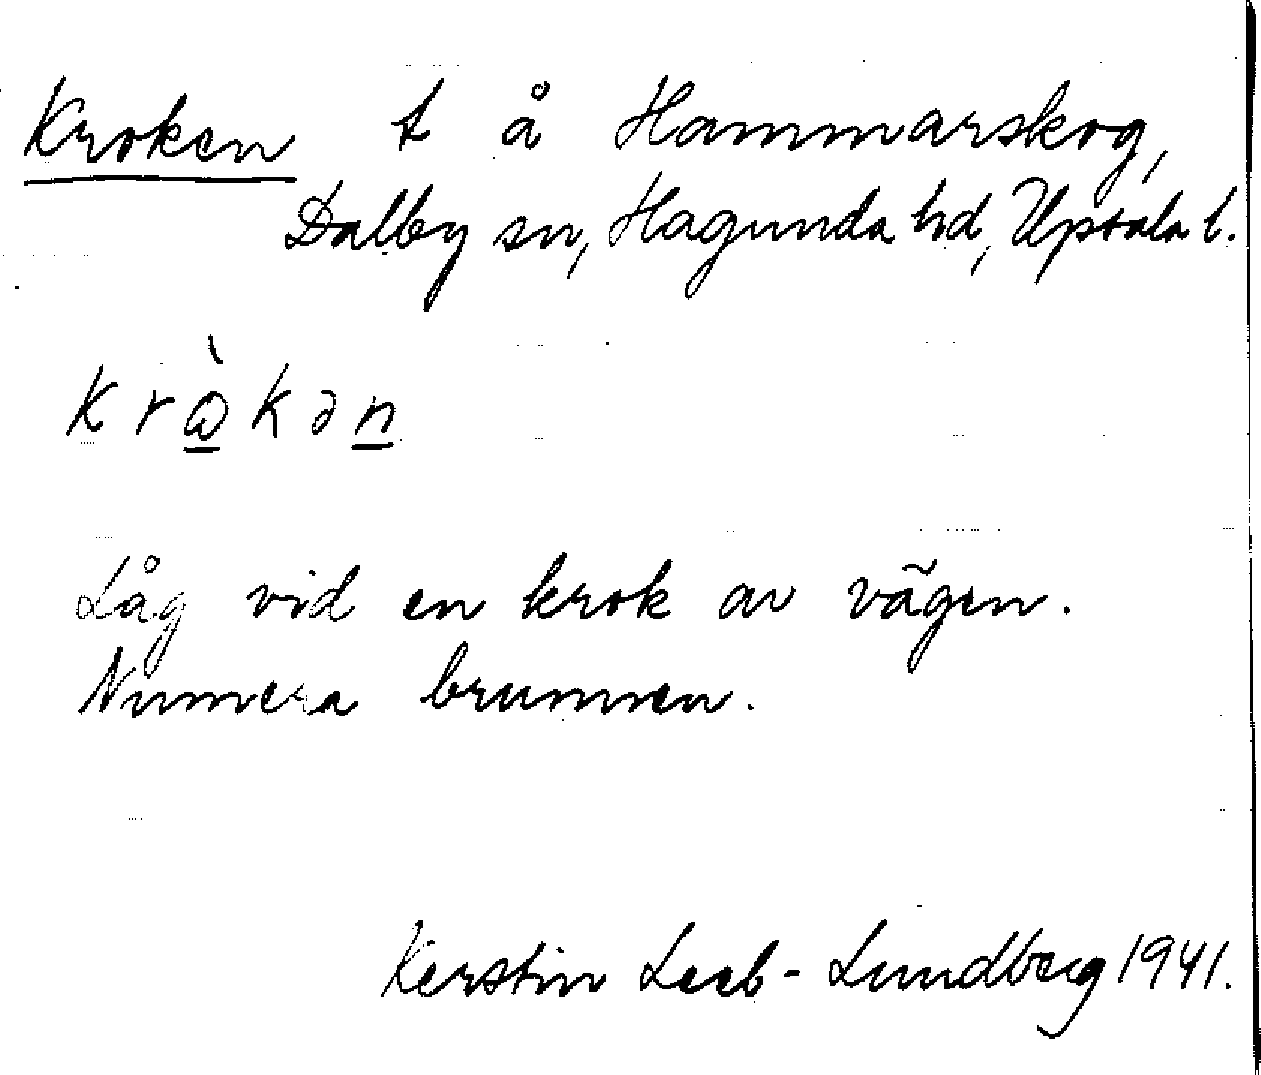 Kroken t å Hammarskog,
Dalby sn, Hagunda hd, Uppsala l.
kròkən
Låg vid en krok av vägen.
Numera brunnen.
Kerstin Leeb-Lundberg 1941.